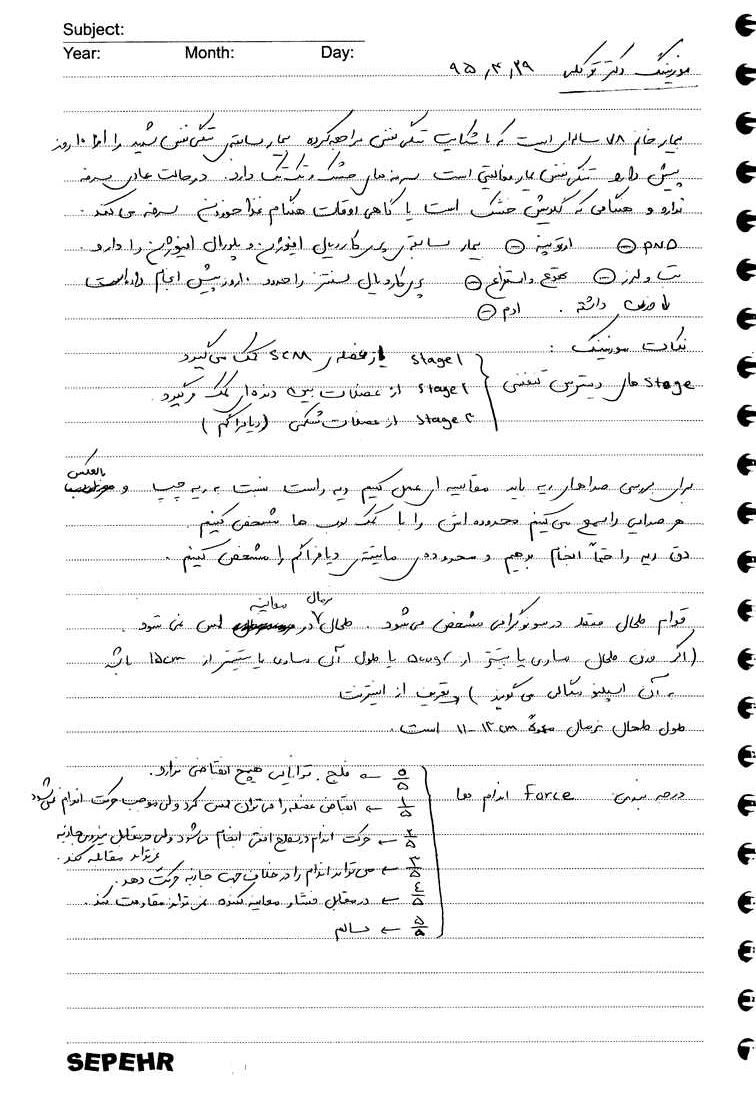 Subject:
Year: Month: Day:
مورنینگ دکتر توکلی ۹۵,۳,۲۹
بیمار خانم ۷۸ ساله‌ای است که با شکایت تنگی نفس مراجعه کرده بیمار سابقه‌ی تنگی نفس شدید را از ۱۰ روز
پیش دارد تنگی نفس بیمار فعالیتی است سرفه های خشک و تک تک دارد. در حالت عادی سرفه
ندارد و هنگامی که گلویش خشک است یا گاهی اوقات هنگام غذا خوردن سرفه می کند.
PND ⊖ ارتوپنه ⊖ بیمار سابقه‌ی پری کاردیال افیوژن و پلورال افیوژن را دارد.
تب و لرز ⊖ تهوع و استفراغ ⊖ پری کاردیال سنتز را حدود ۱۰ روز پیش انجام داده است
داشته . ادم ⊖
نکات مورنینگ :
stage های دیسترس تنفسی
stage 1 از عضله‌ی SCM کمک می گیرد
stage ۲ از عضلات بین دنده ای کمک میگیرد.
stage ۳ از عضلات شکمی (دیافراگم)
برای بررسی صداهای ریه باید مقایسه ای عمل کنیم ریه راست نسبت به ریه چپ و بالعکس
هر صدایی را سمع می کنیم محدوده اش را با کمک لوب ها مشخص کنیم.
دق ریه را حتماً انجام دهیم و محدوده‌ی دیافراگم را مشخص کنیم.
قوام طحال در سونوگرافی مشخص می شود. طحال نرمال در معاینه لمس نمی شود.
(اگر وزن طحال مساوی یا بیشتر از 500gr یا طول آن مساوی یا بیشتر از 15cm باشد
به آن اسپلنومگالی می گویند) تعریف از اینترنت
طول طحال نرمال ۱۱-۱۲ cm است.
درجه بندی Force اندام ها
۰/۵ ← فلج. توانایی هیچ انقباضی ندارد.
۱/۵ ← انقباض عضله را می توان لمس کرد ولی موجب حرکت اندام نمی شود
۲/۵ ← حرکت اندام در سطح افقی انجام می شود ولی در مقابل نیروی جاذبه
نمی تواند مقابله کند.
۳/۵ ← می تواند اندام را در خلاف جهت جاذبه حرکت دهد.
۴/۵ ← در مقابل فشار معاینه کننده می تواند مقاومت کند.
۵/۵ ← سالم
SEPEHR